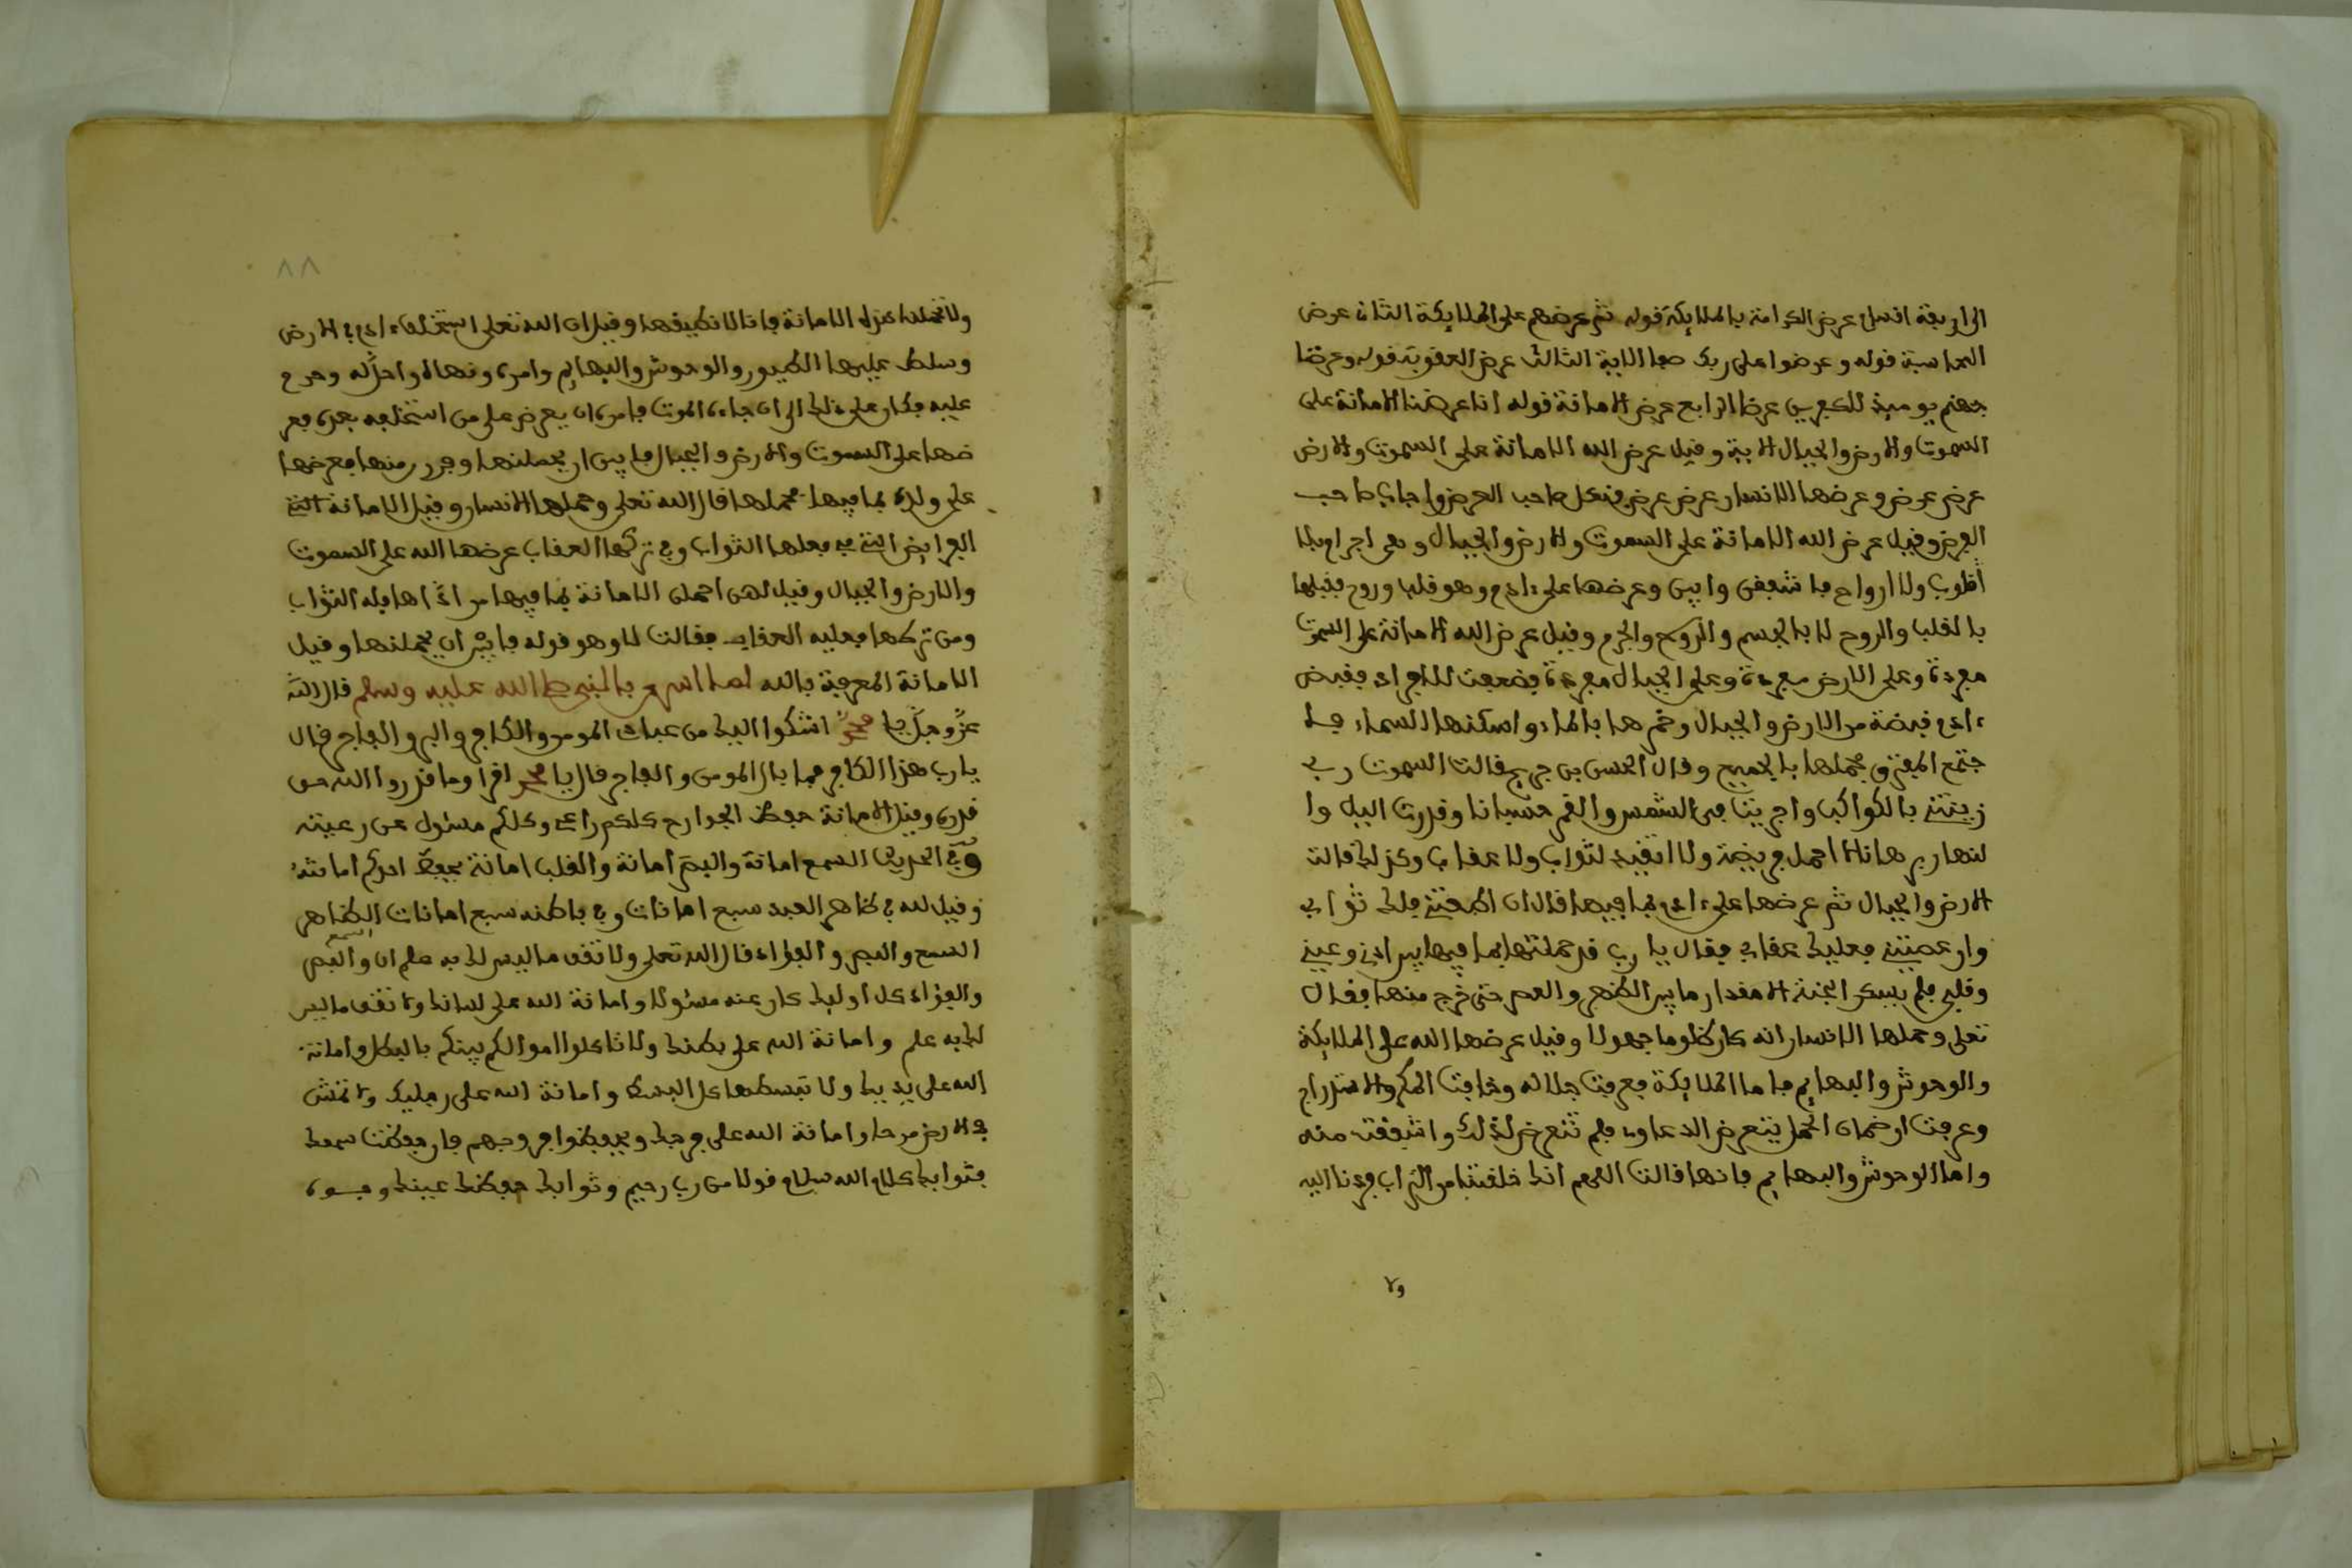 الى اربعة اقسام عرض الكرامة بالملايكة قوله ثم عرضهم على الملايكة الثان عرض
المحاسبة قوله وعرضوا على ربك صفا الاية الثالث عرض العقوبة قوله وعرضنا
جهنم يوميذ للكفرين عرضا الرابع عرض الامانة قوله انا عرضنا الامانة على
السموت والارض والجبال الاية وقيل عرض الله الامانة على السموت والارض
عرض عرض وعرضها للانسان عرض فرض صاحب العرض واجابة صاحب
الفرض وقيل عرض الله الامانة على السموت والارض والجبال وهى اجرام بلا
قلوب ولا ارواح فاشفقن وابين وعرضها على ءادم وهو قلب وروح فقبلها
بالقلب والروح لا بالجسم والروح والجرم وقيل عرض الله الامانة على السموت
مفردة وعلى الارض مفردة وعلى الجبال مفردة فضعفت للافراد فقبض
ءادم قبضة من الارض والجبال وخمرها بالماء واسكنها السماء فا
جتمع المفترق فحملها بالجميع وقال الحسن بن جريج قالت السموت رب
زينتنى بالكواكب واجريت فى الشمس والقمر حسبانا وقدرت اليل وا
لنهار برهانا لا احمل فريضة ولا اتقيد لثواب ولا عقاب وكذلك قالت
الارض والجبال ثم عرضها على ءادم بما فيها قال ان اطعتنى فلك ثوابى
وان عصيتنى فعليك عقابى فقال يا رب قد حملتها بما فيها بين اذنى وعينى
وقلبى فلم يسكن الجنة الا مقدار ما بين الظهر والعصر حتى خرج منها فقال
تعلى وحملها الانسان انه كان ظلوما جهولا وقيل عرضها الله على الملايكة
والوحوش والبهايم فاما الملايكة فعرفت جلاله وخافت المكر والاستدراج
وعرفت ان ضمان الحمل يتعرض الدعاوى فلم تتعرض لذلك واشفقت منه
واما الوحوش والبهايم فانها قالت اللهم انك خلقتنا من التراب فردنا اليه
ولا
٨٨
ولا تحملنا هذه الامانة فانا لا نطيقها وقيل ان الله تعلى استخلف ءادم فى الارض
وسلط عليها الطيور والوحوش والبهايم وامره ونهاه واحل له وحرم
عليه فكان على ذلك الى ان جاءه الموت فامره ان يعرض على من استخلفه بعده فعر
ضها على السموت والارض والجبال فابين ان يحملنها وفررن منها فعرضها
على ولده بما فيها فحملها قال الله تعلى وحملها الانسان وقيل الامانة التى
الفرايض التى فى فعلها الثواب وفى تركها العقاب عرضها الله على السموت
والارض والجبال وقيل لهن احملن الامانة بما فيها من اداها فله الثواب
ومن تركها فعليه العقاب فقالت لا وهو قوله فابين ان يحملنها وقيل
الامانة المعرفة بالله لما اسرى بالنبى صلى الله عليه وسلم قال الله
عز وجل يا محمد اشكوا اليك من عبادى المومن والكافر والبر والفاجر فقال
يا رب هذا الكافر فما بال المومن والفاجر قال يا محمد اقرا وما قدروا الله حق
قدره وقيل الامانة حفظ الجوارح كلكم راعى وكلكم مسئول عن رعيته
وفى الحديث السمع امانة والبصر امانة والقلب امانة فيحفظ احدكم امانته
وقيل لله فى ظاهر العبد سبع امانات وفى باطنه سبع امانات الظاهر
السمع والبصر والفؤاد قال الله تعلى ولا تقف ما ليس لك به علم ان السمع والبصر
والفؤاد كل اوليك كان عنه مسئولا وامانة الله على لسانك ولا تقف ما ليس
لك به علم وامانة الله على بطنك ولا تاكلوا اموالكم بينكم بالبطل وامانة
الله على يديك ولا تبسطها كل البسط وامانة الله على رجليك ولا تمش
فى الارض مرحا وامانة الله على فرجك ويحفظوا فروجهم فان حفظت سمعك
فثوابك كلام الله سلام قولا من رب رحيم وثوابك حفظك عينك وجوه